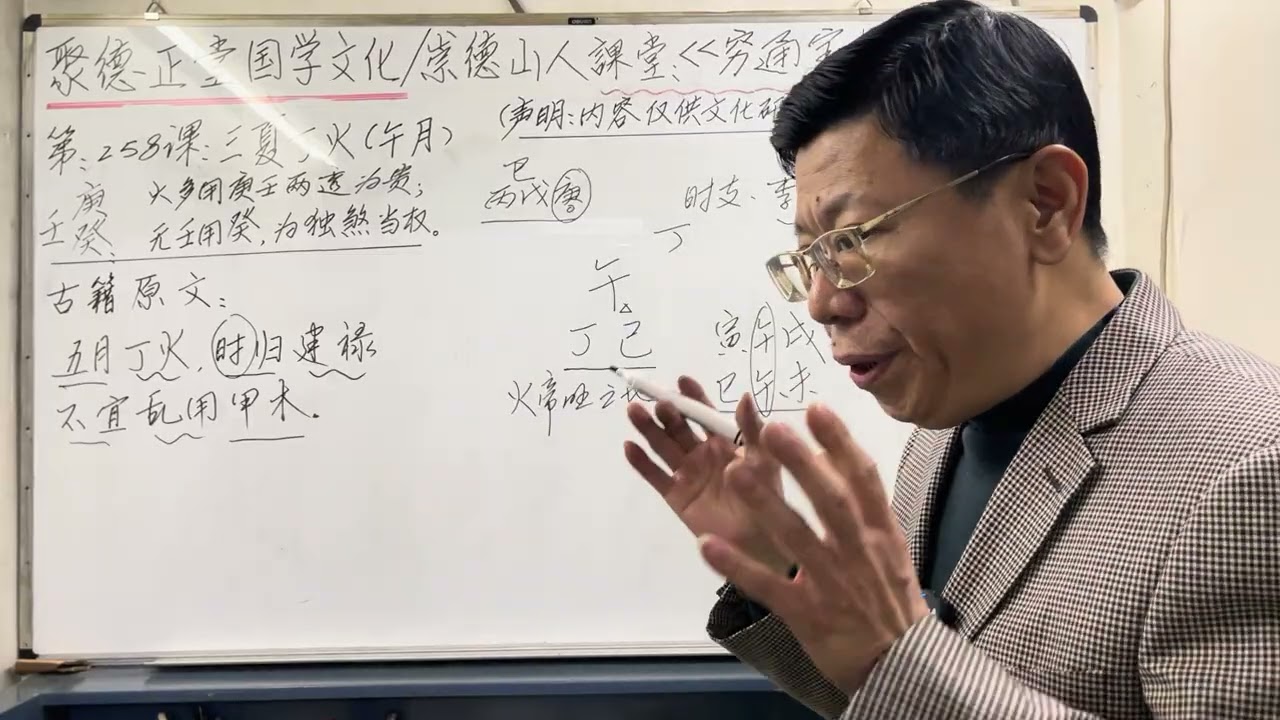 聚德正堂国学文化/崇德山人課堂:《穷通宝
(声明:内容仅供文化研
第:258课:三夏丁火(午月)
庚
壬癸:
火多用庚壬两透为贵;
无壬用癸,为独煞当权。
古籍原文:
五月丁火,时归建禄
不宜乱用甲木.
巳
丙戊庚
时支.
丁
午
丁己
火帝旺之
寅午戌
巳午未